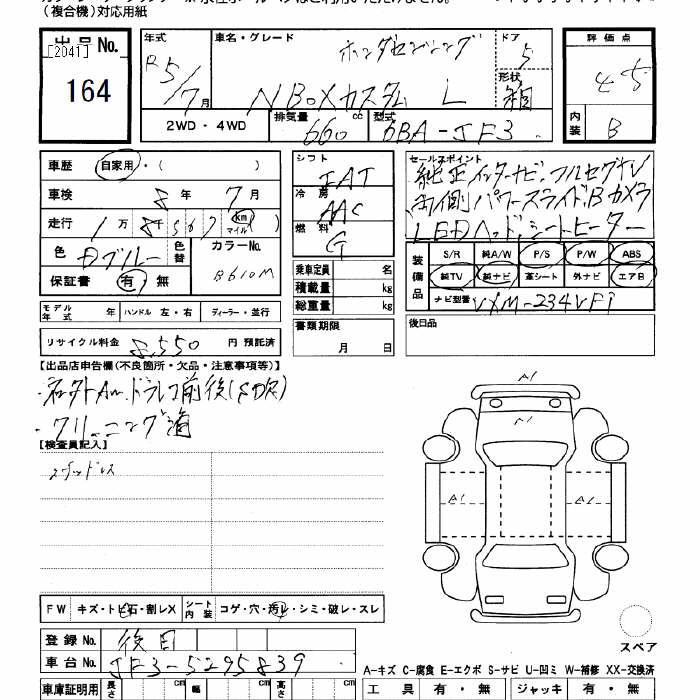 （複合機）対応用紙
出品No.
[2041]
164
年式
R5/7月
車名・グレード
ホンダセンシング
N BOXカスタム L
ドア
5
形状
箱
評価点
4.5
内装
B
2WD・4WD
排気量
660cc
型式
6BA-JF3
車歴 自家用・( )
車検 8年 7月
走行 1万8千567 km マイル
色 Dブルー
色替
カラーNo.
B610M
保証書 有・無
モデル年式 年 ハンドル 左・右 ディーラー・並行
リサイクル料金 8,550円 預託済
シフト
IAT
冷房
AAC
燃料
G
乗車定員 名
積載量 kg
総重量 kg
書類期限
月 日
セールスポイント
純正インターナビ、フルセグTV
両側パワースライド、Bカメラ
LEDヘッド、シートヒーター
装備品
S/R 純A/W P/S P/W ABS
純TV 純ナビ 革シート 外ナビ エアB
ナビ型番 VXM-234VFi
後日品
【出品店申告欄(不良箇所・欠品・注意事項等)】
ドラレコ前後(SDR)
・クリーニング済
【検査員記入】
スタッドレス
A1
A1
A1
A1
FW キズ・トビ石・割レX シート内装 コゲ・穴・汚レ・シミ・破レ・スレ
登録No. 後日
車台No. JF3-5295839
スペア
A-キズ C-腐食 E-エクボ S-サビ U-凹ミ W-補修 XX-交換済
車庫証明用 長さ cm 幅 cm 高さ cm
工具 有・無 ジャッキ 有・無